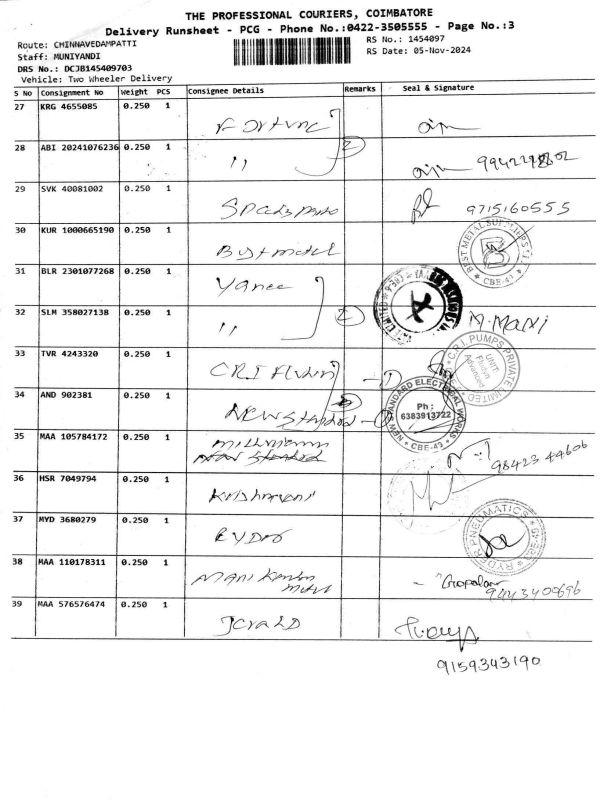 THE PROFESSIONAL COURIERS, COIMBATORE
Delivery Runsheet - PCG - Phone No.:0422-3505555 - Page No.:3
Route: CHINNAVEDAMPATTI
RS No.: 1454097
Staff: MUNIYANDI
RS Date: 05-Nov-2024
DRS No.: DCJB145409703
Vehicle: Two Wheeler Delivery
S No Consignment No Weight PCS Consignee Details Remarks Seal & Signature
27 KRG 4655085 0.250 1 Fortune
28 ABI 20241076236 0.250 1 " 2
29 SVK 40081002 0.250 1 9715160555
30 KUR 1000665190 0.250 1 Best metal BEST METAL SUPPLIERS B CBE-49
31 BLR 2301077268 0.250 1
32 SLM 358027138 0.250 1 " 2 M. Mani
33 TVR 4243320 0.250 1 C.R.I Fluidyn 1 C.R.I. PUMPS PRIVATE LIMITED UNIT Fluidyn Advanced
34 AND 902381 0.250 1 New Standard 1 NEW STANDARD ELECTRICAL WORKS Ph : 6383913722 CBE-49
35 MAA 105784172 0.250 1 98423 44606
36 HSR 7049794 0.250 1 Krishnaveni
37 MYD 3680279 0.250 1 RYDER PNEUMATICS
38 MAA 110178311 0.250 1 Gopalan 9443400696
39 MAA 576576474 0.250 1
9159343190